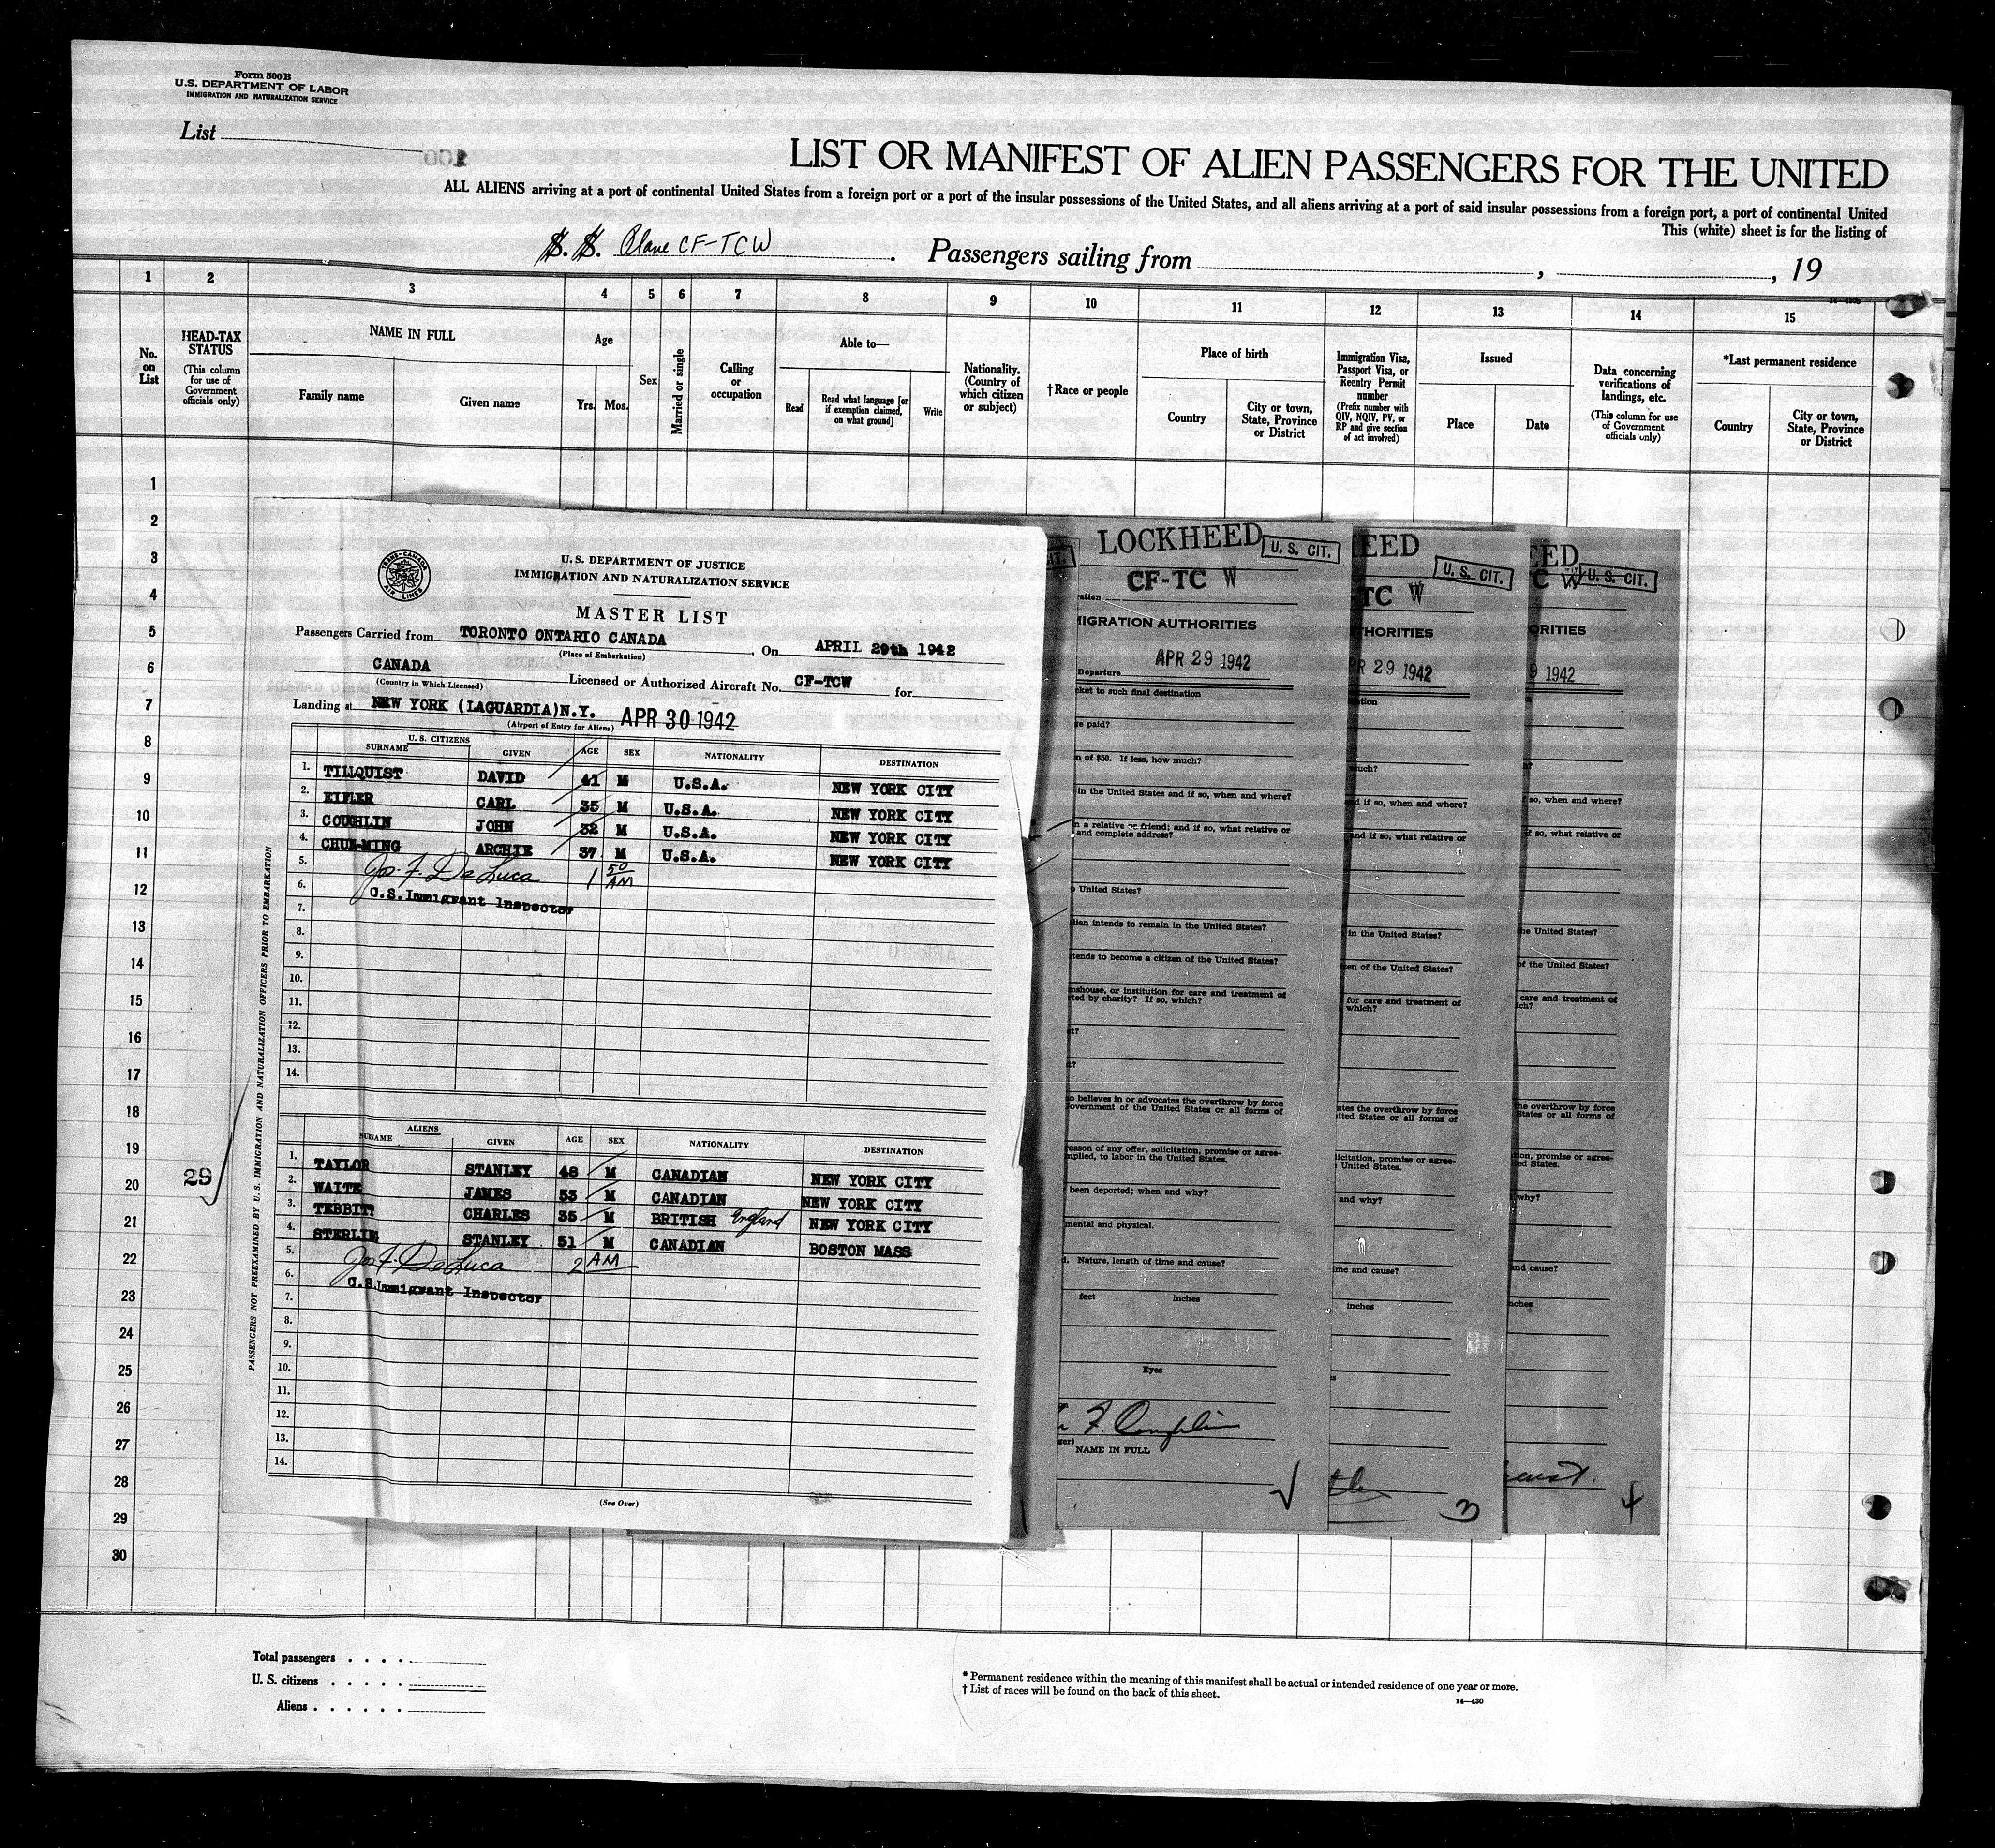 Form 500B
U.S. DEPARTMENT OF LABOR
IMMIGRATION AND NATURALIZATION SERVICE
List
100
LIST OR MANIFEST OF ALIEN PASSENGERS FOR THE UNITED
ALL ALIENS arriving at a port of continental United States from a foreign port or a port of the insular possessions of the United States, and all aliens arriving at a port of said insular possessions from a foreign port, a port of continental United
This (white) sheet is for the listing of
S. S. Plane CF-TCW . Passengers sailing from , , 19
1 2 3 4 5 6 7 8 9 10 11 12 13 14 15
No. on List
HEAD-TAX STATUS
(This column for use of Government officials only)
NAME IN FULL
Family name
Given name
Age
Yrs. Mos.
Sex
Married or single
Calling or occupation
Able to—
Read
Read what language [or if exemption claimed, on what ground]
Write
Nationality. (Country of which citizen or subject)
†Race or people
Place of birth
Country
City or town, State, Province or District
Immigration Visa, Passport Visa, or Reentry Permit number
(Prefix number with QIV, NQIV, PV, or RP and give section of act involved)
Issued
Place
Date
Data concerning verifications of landings, etc.
(This column for use of Government officials only)
*Last permanent residence
Country
City or town, State, Province or District
1
2
3
4
5
6
7
8
9
10
11
12
13
14
15
16
17
18
19
20
21
22
23
24
25
26
27
28
29
30
29
TRANS-CANADA AIR LINES
U. S. DEPARTMENT OF JUSTICE
IMMIGRATION AND NATURALIZATION SERVICE
MASTER LIST
Passengers Carried from TORONTO ONTARIO CANADA , On APRIL 29th 1942
(Place of Embarkation)
CANADA Licensed or Authorized Aircraft No. CF-TCW for
(Country in Which Licensed)
Landing at NEW YORK (LAGUARDIA)N.Y. APR 30 1942
(Airport of Entry for Aliens)
U. S. CITIZENS
SURNAME GIVEN AGE SEX NATIONALITY DESTINATION
1. TILLQUIST DAVID 41 M U.S.A. NEW YORK CITY
2. EIFLER CARL 35 M U.S.A. NEW YORK CITY
3. COUGHLIN JOHN 32 M U.S.A. NEW YORK CITY
4. CHUN-MING ARCHIE 37 M U.S.A. NEW YORK CITY
5. Jos. F. De Luca 1 50 AM
6. U.S.Immigrant Inspector
7.
8.
9.
10.
11.
12.
13.
14.
ALIENS
SURNAME GIVEN AGE SEX NATIONALITY DESTINATION
1. TAYLOR STANLEY 48 M CANADIAN NEW YORK CITY
2. WAITE JAMES 53 M CANADIAN NEW YORK CITY
3. TEBBITT CHARLES 35 M BRITISH England NEW YORK CITY
4. STERLIN STANLEY 51 M CANADIAN BOSTON MASS
5. Jos F. De Luca 2 AM
6. U.S.Immigrant Inspector
7.
8.
9.
10.
11.
12.
13.
14.
(See Over)
PASSENGERS NOT PREEXAMINED BY U. S. IMMIGRATION AND NATURALIZATION OFFICERS PRIOR TO EMBARKATION
IT.
LOCKHEED
U. S. CIT.
CF-TC W
ration
MIGRATION AUTHORITIES
APR 29 1942
Departure
cket to such final destination
e paid?
n of $50. If less, how much?
in the United States and if so, when and where?
n a relative or friend; and if so, what relative or
and complete address?
United States?
lien intends to remain in the United States?
tends to become a citizen of the United States?
mshouse, or institution for care and treatment of
ted by charity? If so, which?
t?
t?
o believes in or advocates the overthrow by force
overnment of the United States or all forms of
reason of any offer, solicitation, promise or agree-
mplied, to labor in the United States.
been deported; when and why?
mental and physical.
d. Nature, length of time and cause?
feet inches
Eyes
F. Coughlin
ger)
NAME IN FULL
EED
U. S. CIT.
TC W
THORITIES
PR 29 1942
tion
uch?
nd if so, when and where?
and if so, what relative or
in the United States?
en of the United States?
for care and treatment of
which?
ates the overthrow by force
ited States or all forms of
licitation, promise or agree-
United States.
and why?
ime and cause?
inches
s
3
EED
U. S. CIT.
C W
ORITIES
9 1942
n
?
so, when and where?
f so, what relative or
he United States?
of the United States?
care and treatment of
ich?
he overthrow by force
States or all forms of
ion, promise or agree-
ted States.
why?
and cause?
nches
4
Total passengers . . . .
U. S. citizens . . . . .
Aliens . . . . . .
* Permanent residence within the meaning of this manifest shall be actual or intended residence of one year or more.
† List of races will be found on the back of this sheet.
14—430